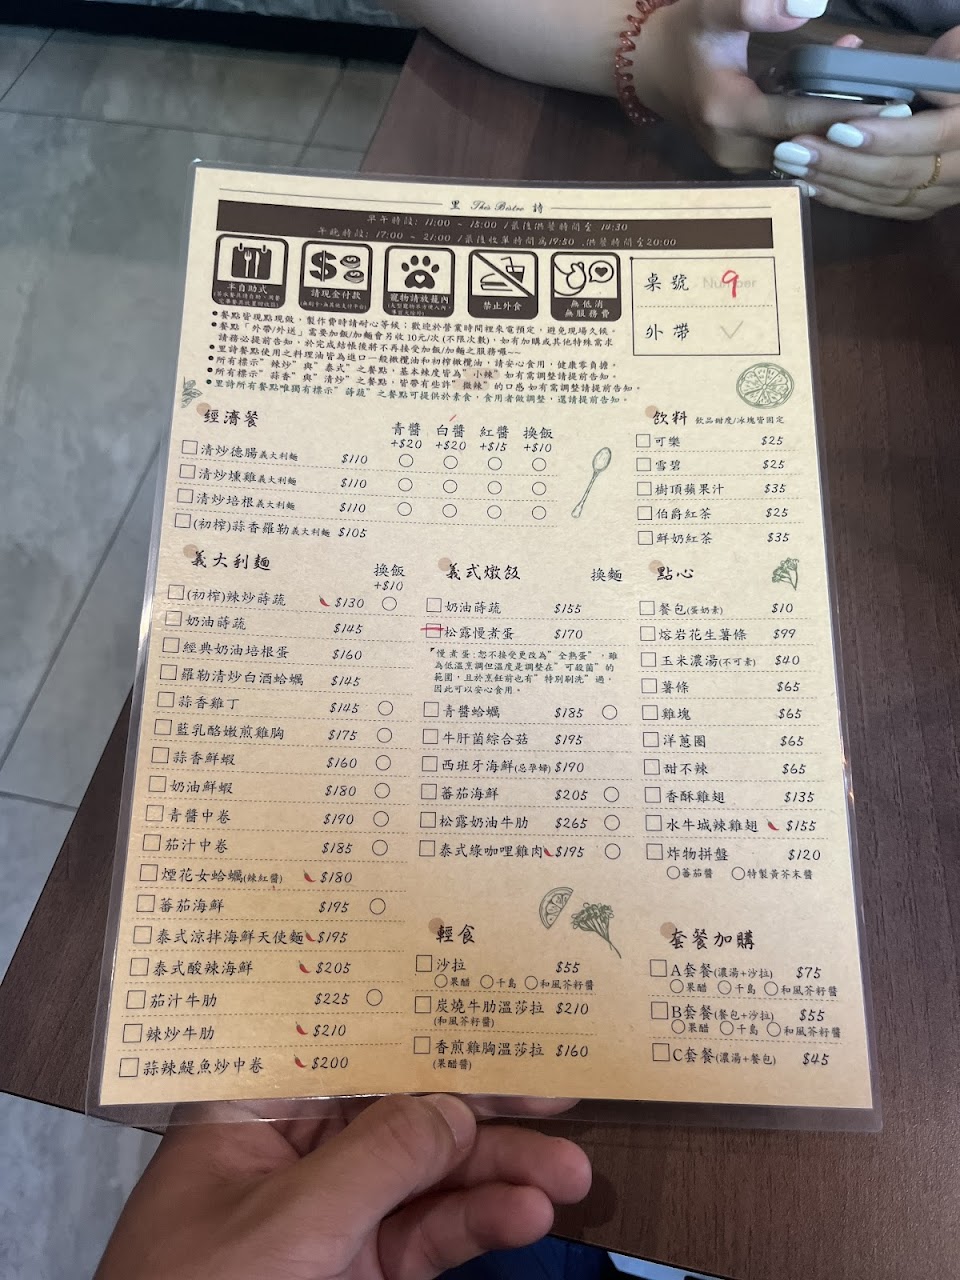 里 Thés Bistro 詩
早午時段: 11:00 ~ 15:00 /最後供餐時間至 14:30
午晚時段: 17:00 ~ 21:00 /最後收單時間為19:50 .供餐時間至20:00
半自助式
請現金付款
寵物請放籠內
禁止外食
無低消
無服務費
桌號 Number 9
外帶
•餐點皆現點現做，製作費時請耐心等候；歡迎於營業時間裡來電預定，避免現場久候。
•餐點「外帶/外送」需要加飯/加麵會另收 10元/次 (不限次數)，如有加購或其他特殊需求
請務必提前告知，於完成結帳後將不再接受加飯/加麵之服務哦~~
•里詩餐點使用之料理油皆為進口一般橄欖油和初榨橄欖油，請安心食用，健康零負擔。
•所有標示"辣炒"與"泰式"之餐點，基本辣度皆為"小辣"如有需調整請提前告知。
•所有標示"蒜香"與"清炒"之餐點，皆帶有些許"微辣"的口感 如有需調整請提前告知。
•里詩所有餐點唯獨有標示"蒔蔬"之餐點可提供於素食，食用者做調整，還請提前告知。
經濟餐 青醬 白醬 紅醬 換飯
+$20 +$20 +$15 +$10
清炒德腸義大利麵 $110
清炒燻雞義大利麵 $110
清炒培根義大利麵 $110
(初榨)蒜香羅勒義大利麵 $105
飲料 飲品甜度/冰塊皆固定
可樂 $25
雪碧 $25
樹頂蘋果汁 $35
伯爵紅茶 $25
鮮奶紅茶 $35
義大利麵 換飯
+$10
(初榨)辣炒蒔蔬 $130
奶油蒔蔬 $145
經典奶油培根蛋 $160
羅勒清炒白酒蛤蠣 $145
蒜香雞丁 $145
藍乳酪嫩煎雞胸 $175
蒜香鮮蝦 $160
奶油鮮蝦 $180
青醬中卷 $190
茄汁中卷 $185
煙花女蛤蠣(辣紅醬) $180
蕃茄海鮮 $195
泰式涼拌海鮮天使麵 $195
泰式酸辣海鮮 $205
茄汁牛肋 $225
辣炒牛肋 $210
蒜辣鯷魚炒中卷 $200
義式燉飯 換麵
奶油蒔蔬 $155
松露慢煮蛋 $170
慢煮蛋:恕不接受更改為"全熟蛋"，雖
為低溫烹調但溫度是調整在"可殺菌"的
範圍，且於烹飪前也有"特別刷洗"過，
因此可以安心食用。
青醬蛤蠣 $185
牛肝菌綜合菇 $195
西班牙海鮮(忌孕婦) $190
蕃茄海鮮 $205
松露奶油牛肋 $265
泰式綠咖哩雞肉 $195
輕食
沙拉 $55
果醋 千島 和風芥籽醬
炭燒牛肋溫莎拉 $210
(和風芥籽醬)
香煎雞胸溫莎拉 $160
(果醋醬)
點心
餐包(蛋奶素) $10
熔岩花生薯條 $99
玉米濃湯(不可素) $40
薯條 $65
雞塊 $65
洋蔥圈 $65
甜不辣 $65
香酥雞翅 $135
水牛城辣雞翅 $155
炸物拼盤 $120
蕃茄醬 特製黃芥末醬
套餐加購
A套餐(濃湯+沙拉) $75
果醋 千島 和風芥籽醬
B套餐(餐包+沙拉) $55
果醋 千島 和風芥籽醬
C套餐(濃湯+餐包) $45